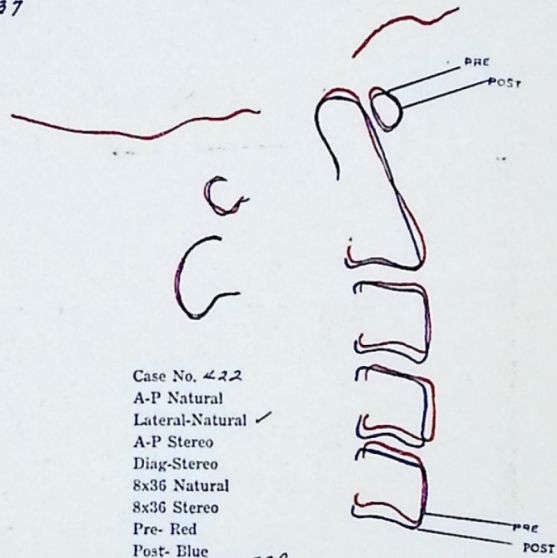 37
PRE
POST
Case No. 422
A-P Natural
Lateral-Natural ✓
A-P Stereo
Diag-Stereo
8x36 Natural
8x36 Stereo
Pre- Red
Post- Blue
PRE
POST